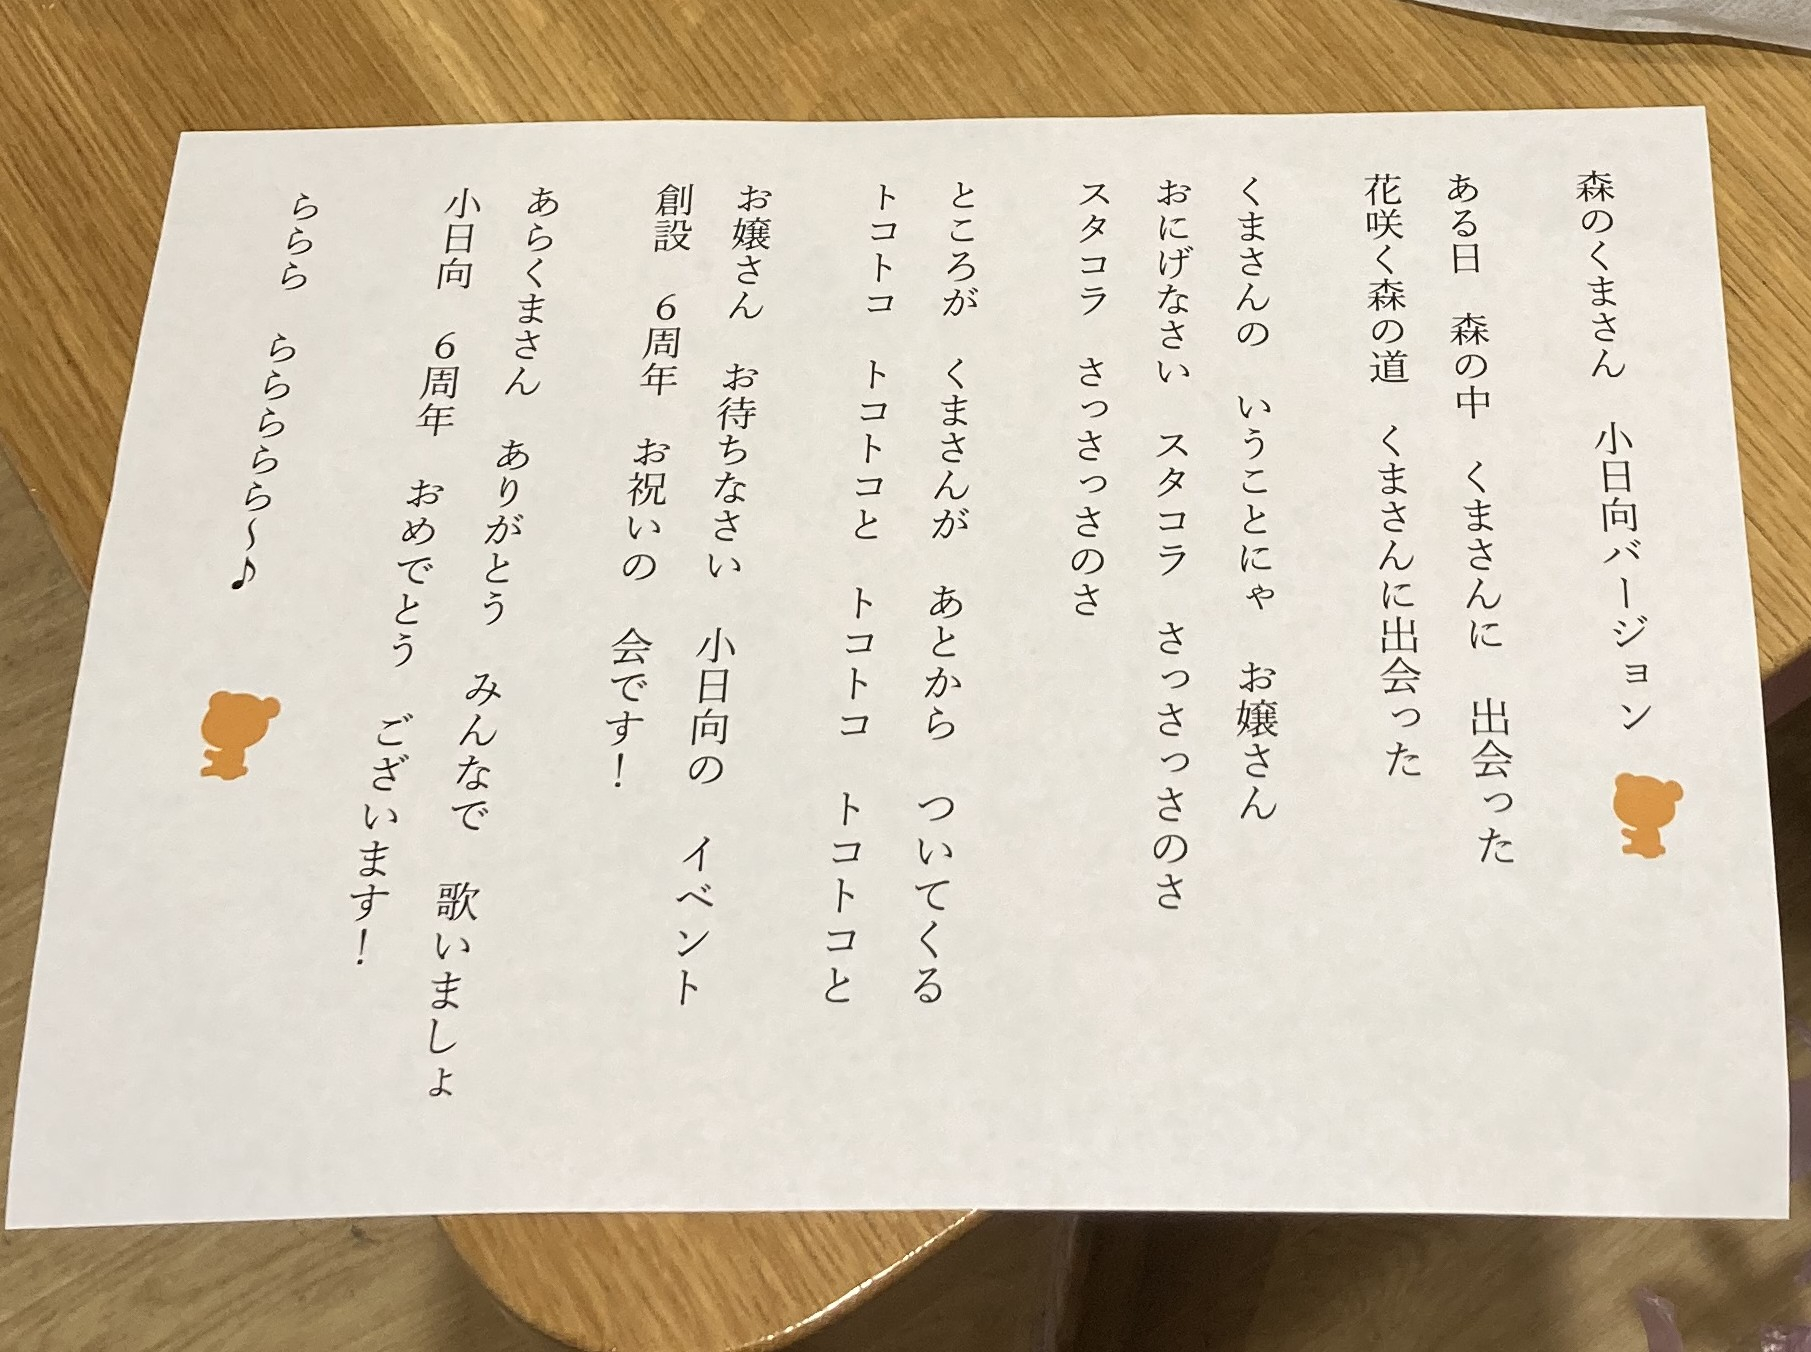 森のくまさん　小日向バージョン
ある日　森の中　くまさんに　出会った
花咲く森の道　くまさんに出会った
くまさんの　いうことにゃ　お嬢さん
おにげなさい　スタコラ　さっさっさのさ
スタコラ　さっさっさのさ
ところが　くまさんが　あとから　ついてくる
トコトコ　トコトコと　トコトコ　トコトコと
お嬢さん　お待ちなさい　小日向の　イベント
創設　６周年　お祝いの　会です！
あらくまさん　ありがとう　みんなで　歌いましょ
小日向　６周年　おめでとう　ございます！
ららら　ららららら～♪